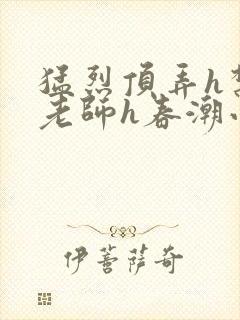 猛烈頂弄h
老師h春潮
伊菩薩奇